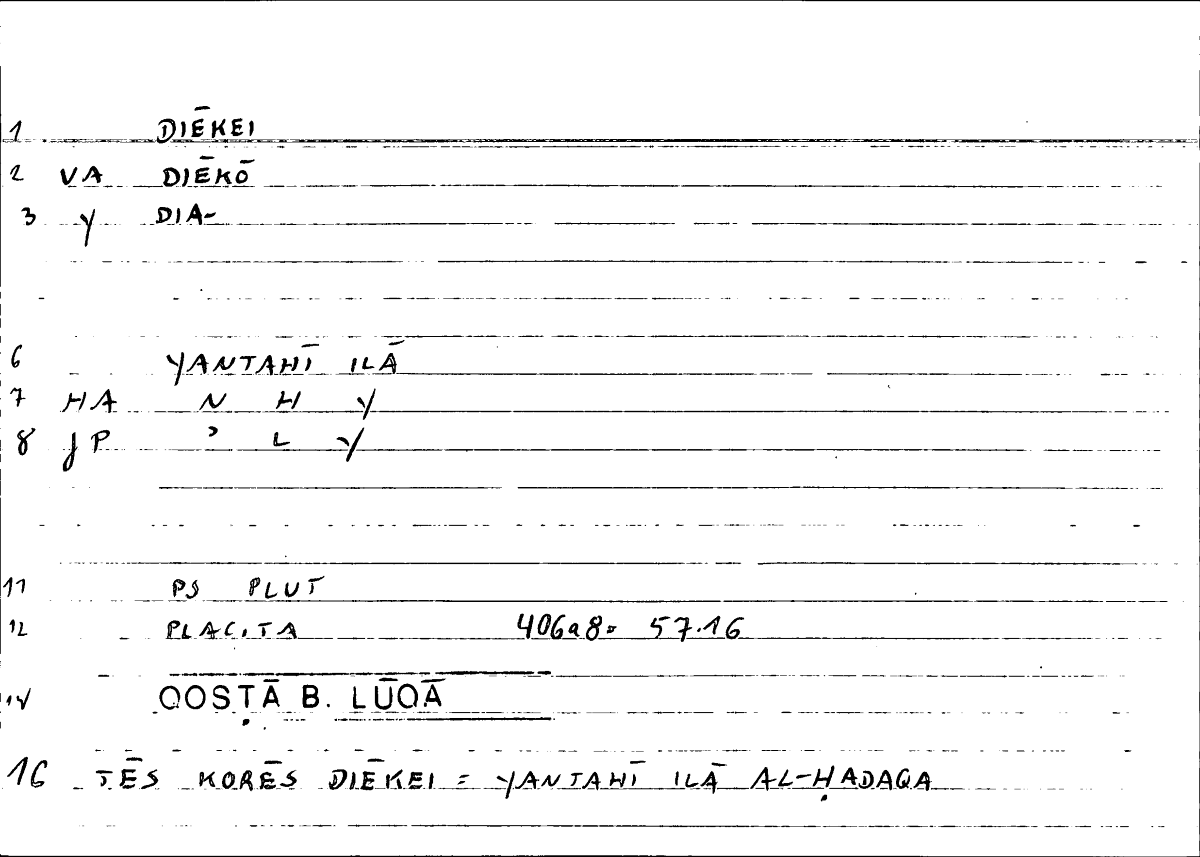 1 DIĒKEI
2 VA DIĒKŌ
3 Y DIA-
6 YANTAHĪ ILĀ
7 HA N H Y
8 JP ʾ L Y
11 PS PLUT
12 PLACITA 406a8= 57.16
14 QOSṬĀ B. LŪQĀ
16 TĒS KORĒS DIĒKEI = YANTAHĪ ILĀ AL-ḤADAQA